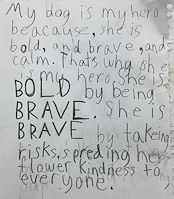 My dog is my hero
beacause, she is
bold, and brave, and
calm. Thats why she
is my hero, she is
BOLD by being
BRAVE. She is
BRAVE by takeing
risks, spreding her
flower kindness to
everyone.